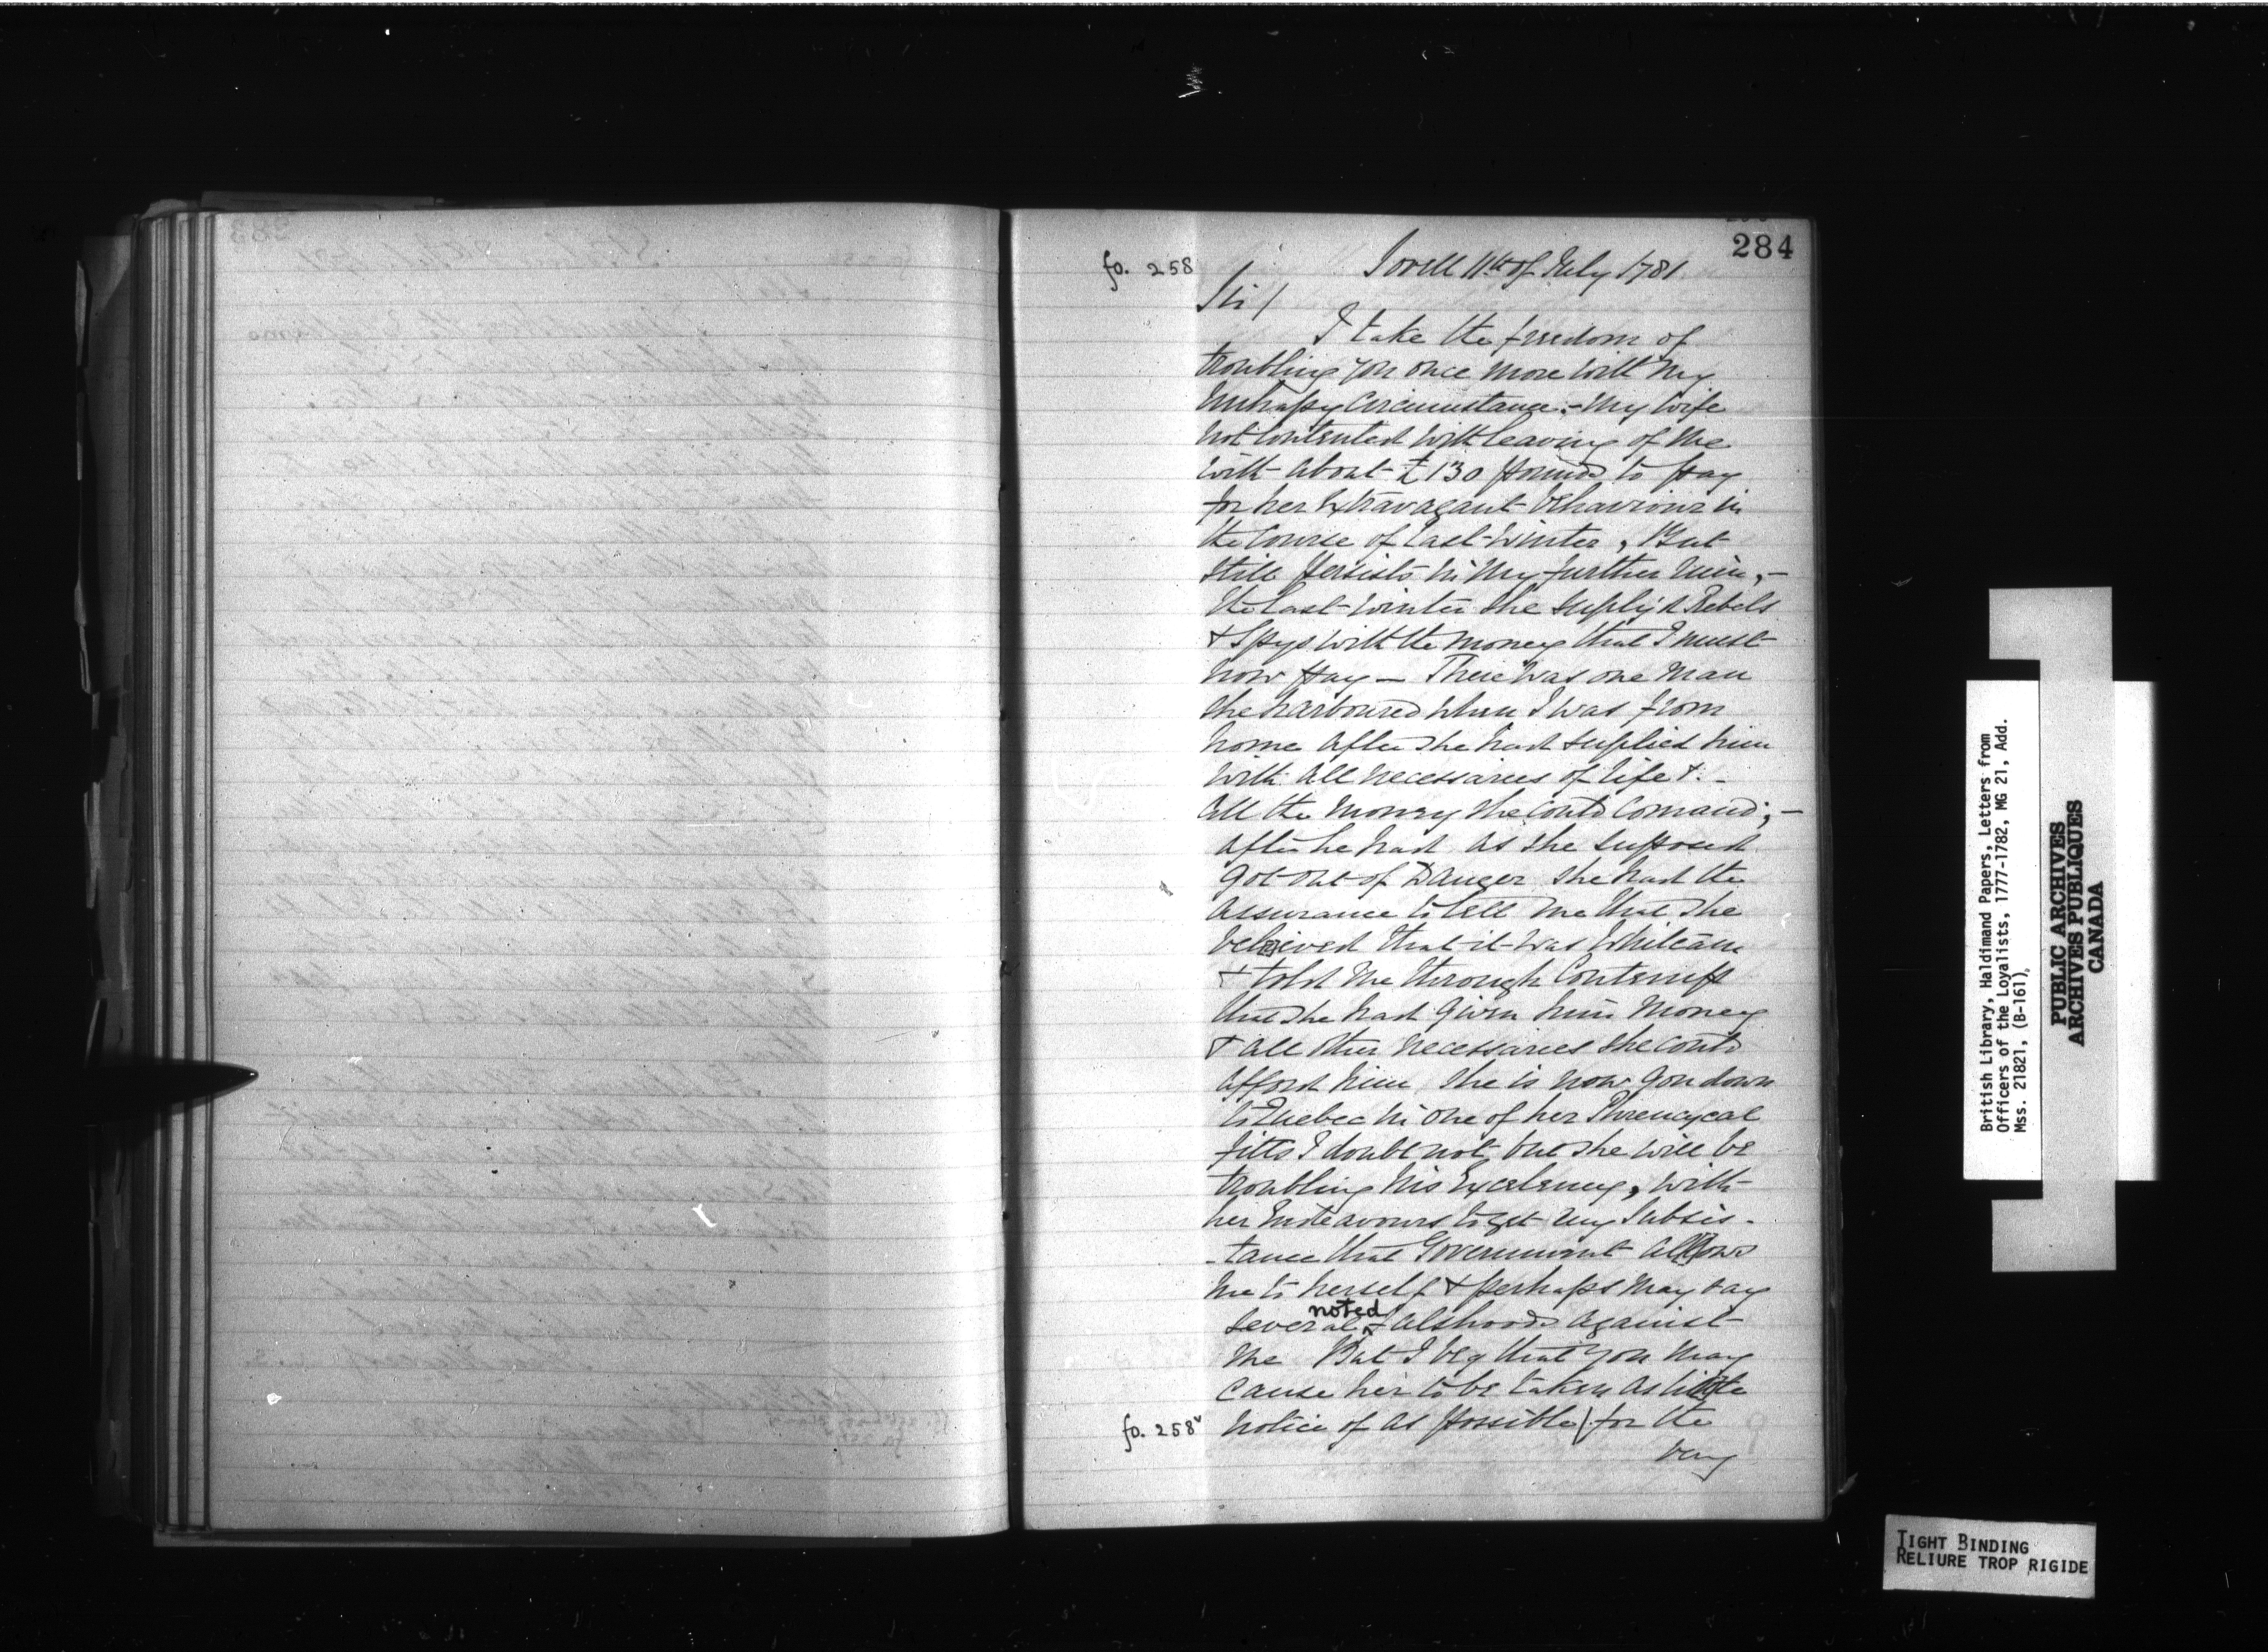 284
fo. 258
Sorell 11th of July 1781.
Sir/
I take the freedom of
troubling you once more with my
unhappy Circumstance.- My wife
not Contented with leaving of me
with about £130 pounds to pay
for her Extravagant behaviour in
the Course of last winter, But
still persists in my further ruin,-
the last winter she supply'd Rebels
& Spys with the money that I must
now pay — There was one man
she harboured when I was from
home after she had supplied him
with all necessaries of life &.-
all the money she could Comand;-
after he had as she supposed
got out of Danger she had the
assurance to tell me that she
beleived that it was
& told me through Contempt
that she had given him money
& all other necessaries she could
afford him she is now gon down
to Quebec in one of her Phrencycal
fitts I doubt not but she will be
troubling his Excelency, with
her Endeavours to get my Subsis-
-tance that Government allows
me to herself & perhaps may say
several noted falshoods against
me But I beg that you may
cause her to be taken as little
fo. 258v notice of as possible/for the
very
British Library, Haldimand Papers, Letters from
Officers of the Loyalists, 1777-1782, MG 21, Add.
Mss. 21821, (B-161).
PUBLIC ARCHIVES
ARCHIVES PUBLIQUES
CANADA
TIGHT BINDING
RELIURE TROP RIGIDE